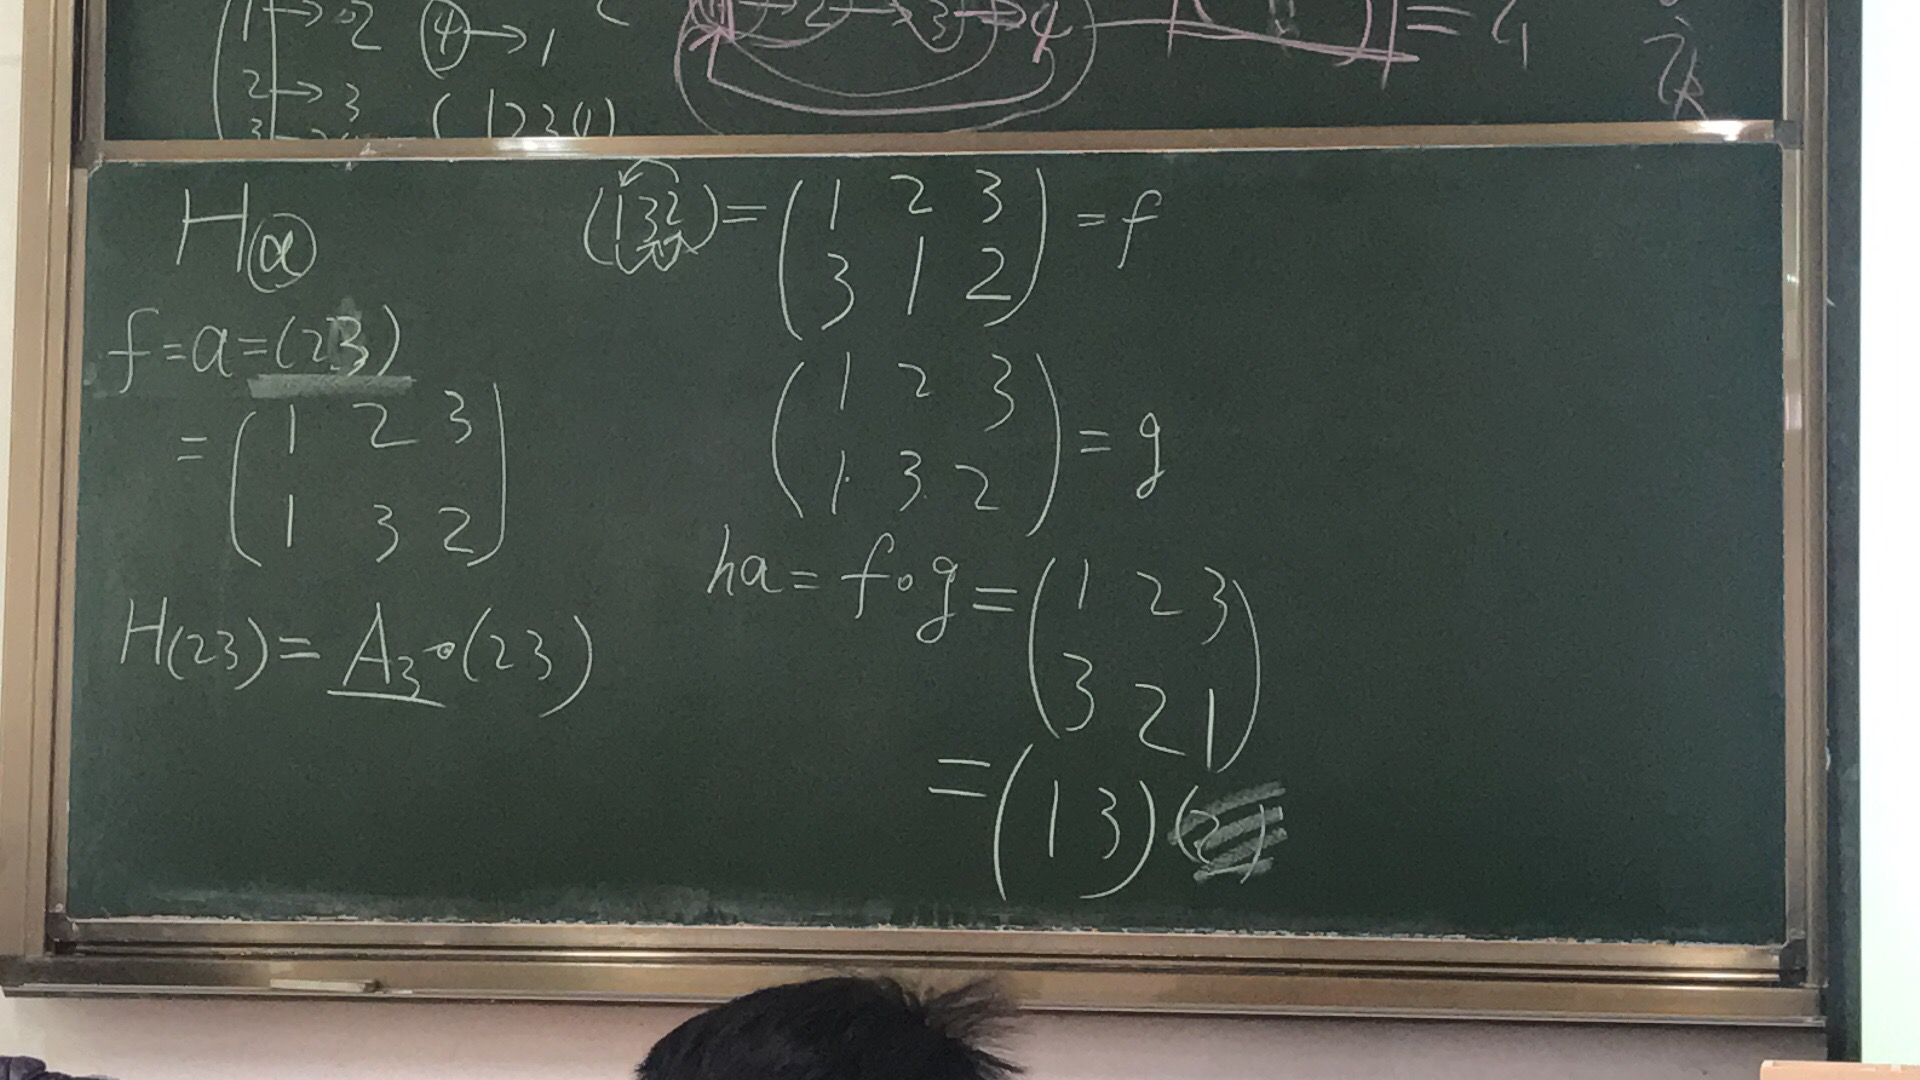 1 → 2 4 → 1
2 → 3
( 1 2 3 4 )
→ 2 → 3 → 4
Ha
f = a = (23)
= ( 1 2 3
1 3 2 )
H(23) = A₃∘(23)
(132) = ( 1 2 3
3 1 2 ) = f
( 1 2 3
1 3 2 ) = g
ha = f∘g = ( 1 2 3
3 2 1 )
= ( 1 3 ) (2)